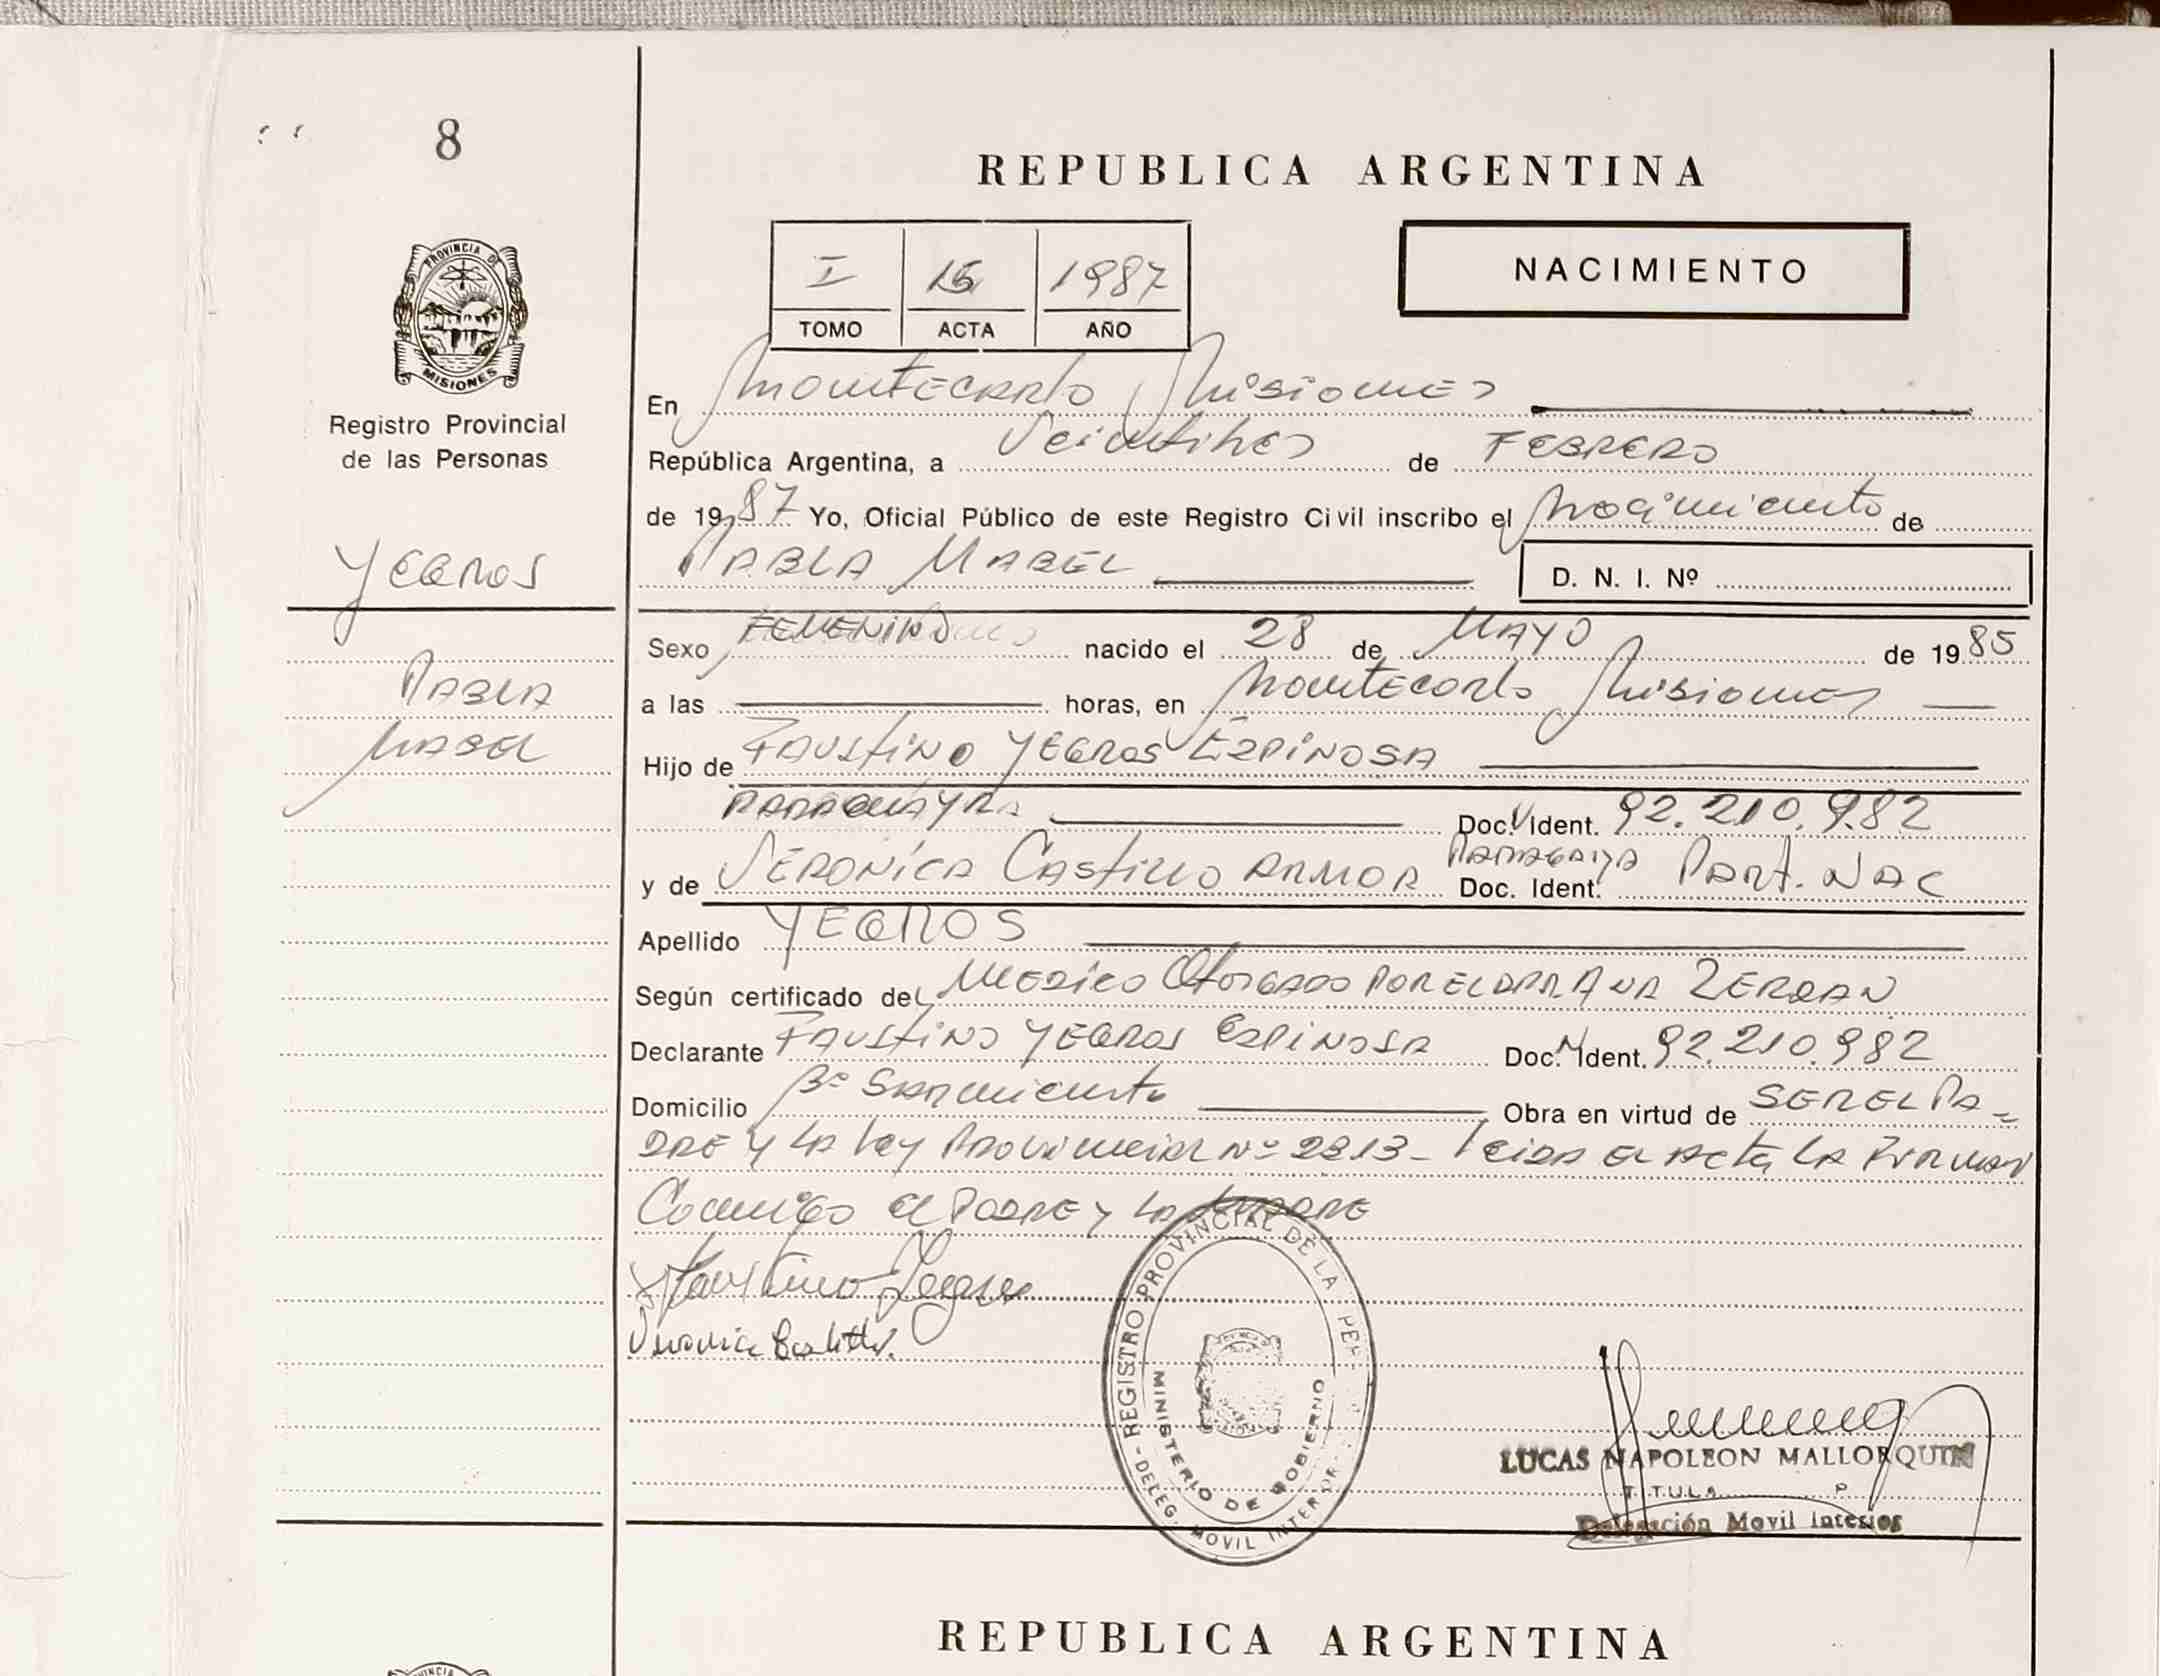 8
REPUBLICA ARGENTINA
PROVINCIA DE
MISIONES
Registro Provincial
de las Personas
I 15 1987
TOMO ACTA AÑO
NACIMIENTO
En Montecarlo Misiones
República Argentina, a Veintitres de FEBRERO
de 1987 Yo, Oficial Público de este Registro Civil inscribo el Nacimiento de
PABLA MABEL D. N. I. Nº
YEGROS
PABLA
MABEL
Sexo FEMENINO nacido el 28 de MAYO de 1985
a las horas, en Montecarlo Misiones
Hijo de FAUSTINO YEGROS ESPINOSA
PARAGUAYA Doc. Ident. 92.210.982
y de VERONICA CASTILLO ARMOA PARAGAIYA Doc. Ident. PART. NAC
Apellido YEGROS
Según certificado del MEDICO Otorgado POR EL DRA ANA
Declarante FAUSTINO YEGROS ESPINOSA Doc. N Ident. 92.210.982
Domicilio Bº Sarmiento Obra en virtud de SER EL PA-
DRE Y LA Ley Provincial Nº 2813- leida el acta LA Firman
Conmigo el PADRE y LA MADRE
Faustino Yegros
Veronica Castillo.
REGISTRO PROVINCIAL DE LA PER
MINISTERIO DE GOBIERNO
DELEG. MOVIL INTERIOR
LUCAS NAPOLEON MALLORQUIN
Delegación Movil Interior
REPUBLICA ARGENTINA
PROVINCIA